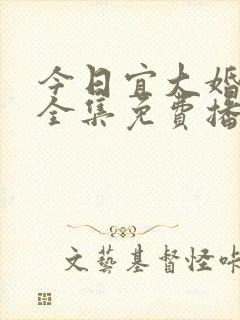 今日宜大婚
全集免費播
文藝基督怪咔